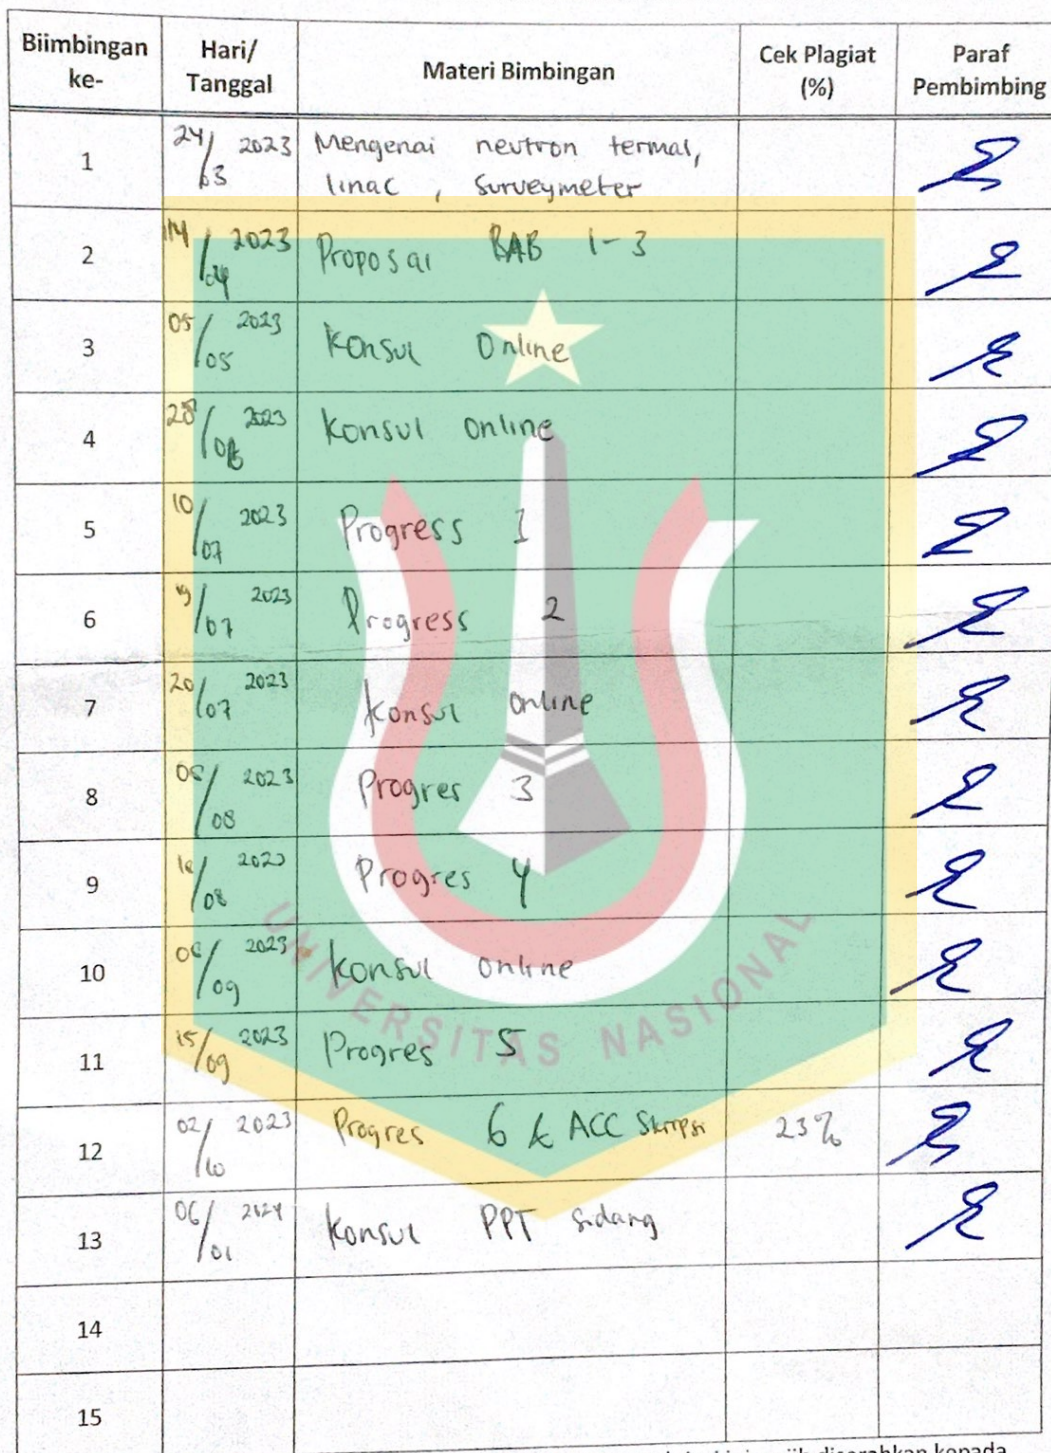 Biimbingan ke- Hari/ Tanggal Materi Bimbingan Cek Plagiat (%) Paraf Pembimbing
1 24/03 2023 Mengenai neutron termal,
linac, surveymeter
2 14/04 2023 Proposal BAB 1-3
3 05/05 2023 Konsul Online
4 28/06 2023 Konsul Online
5 10/07 2023 Progress 1
6 19/07 2023 Progress 2
7 20/07 2023 Konsul online
8 /08 2023 Progres 3
9 /08 2023 Progres 4
10 /09 2023 Konsul online
11 15/09 2023 Progres 5
12 02/10 2023 Progres 6 & ACC Skripsi 23%
13 06/01 2024 Konsul PPT sidang
14
15
UNIVERSITAS NASIONAL
diserahkan kepada